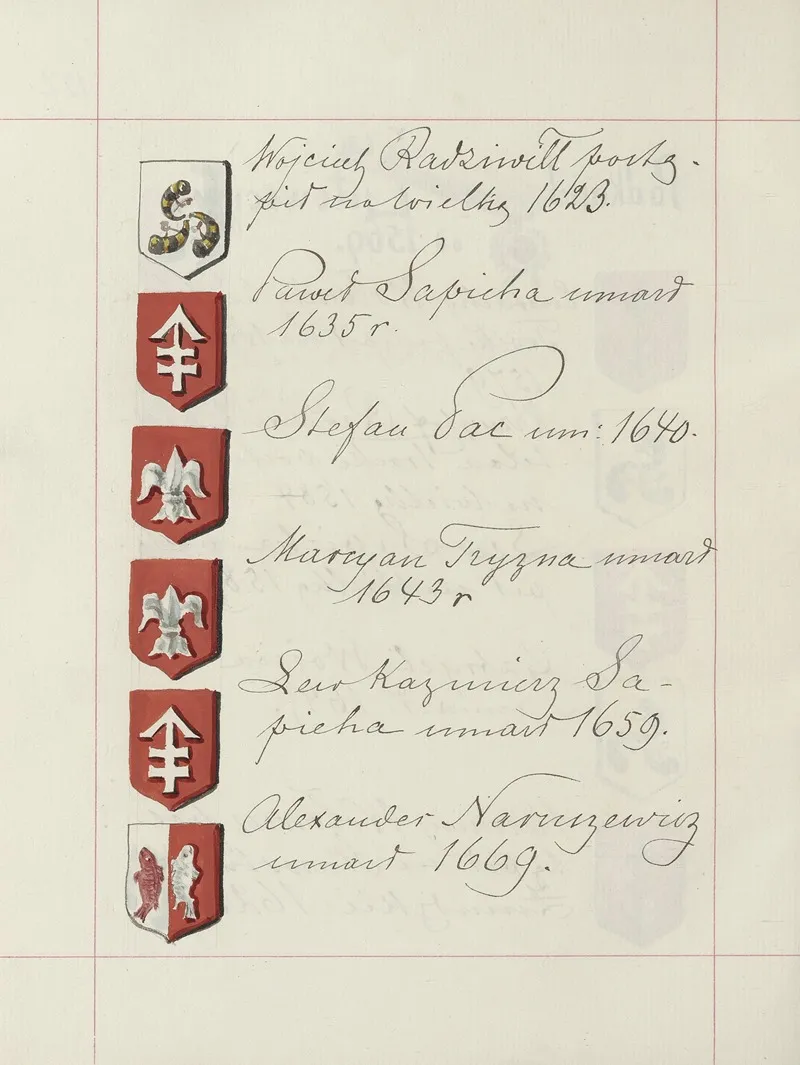 Wojciech Radziwiłł postą-
pił na wielką 1623.
Paweł Sapieha umarł
1635 r.
Stefan Pac um: 1640.
Marcyan Tryzna umarł
1643 r
Lew Kazimierz Sa-
pieha umarł 1659.
Alexander Naruszewicz
umarł 1669.